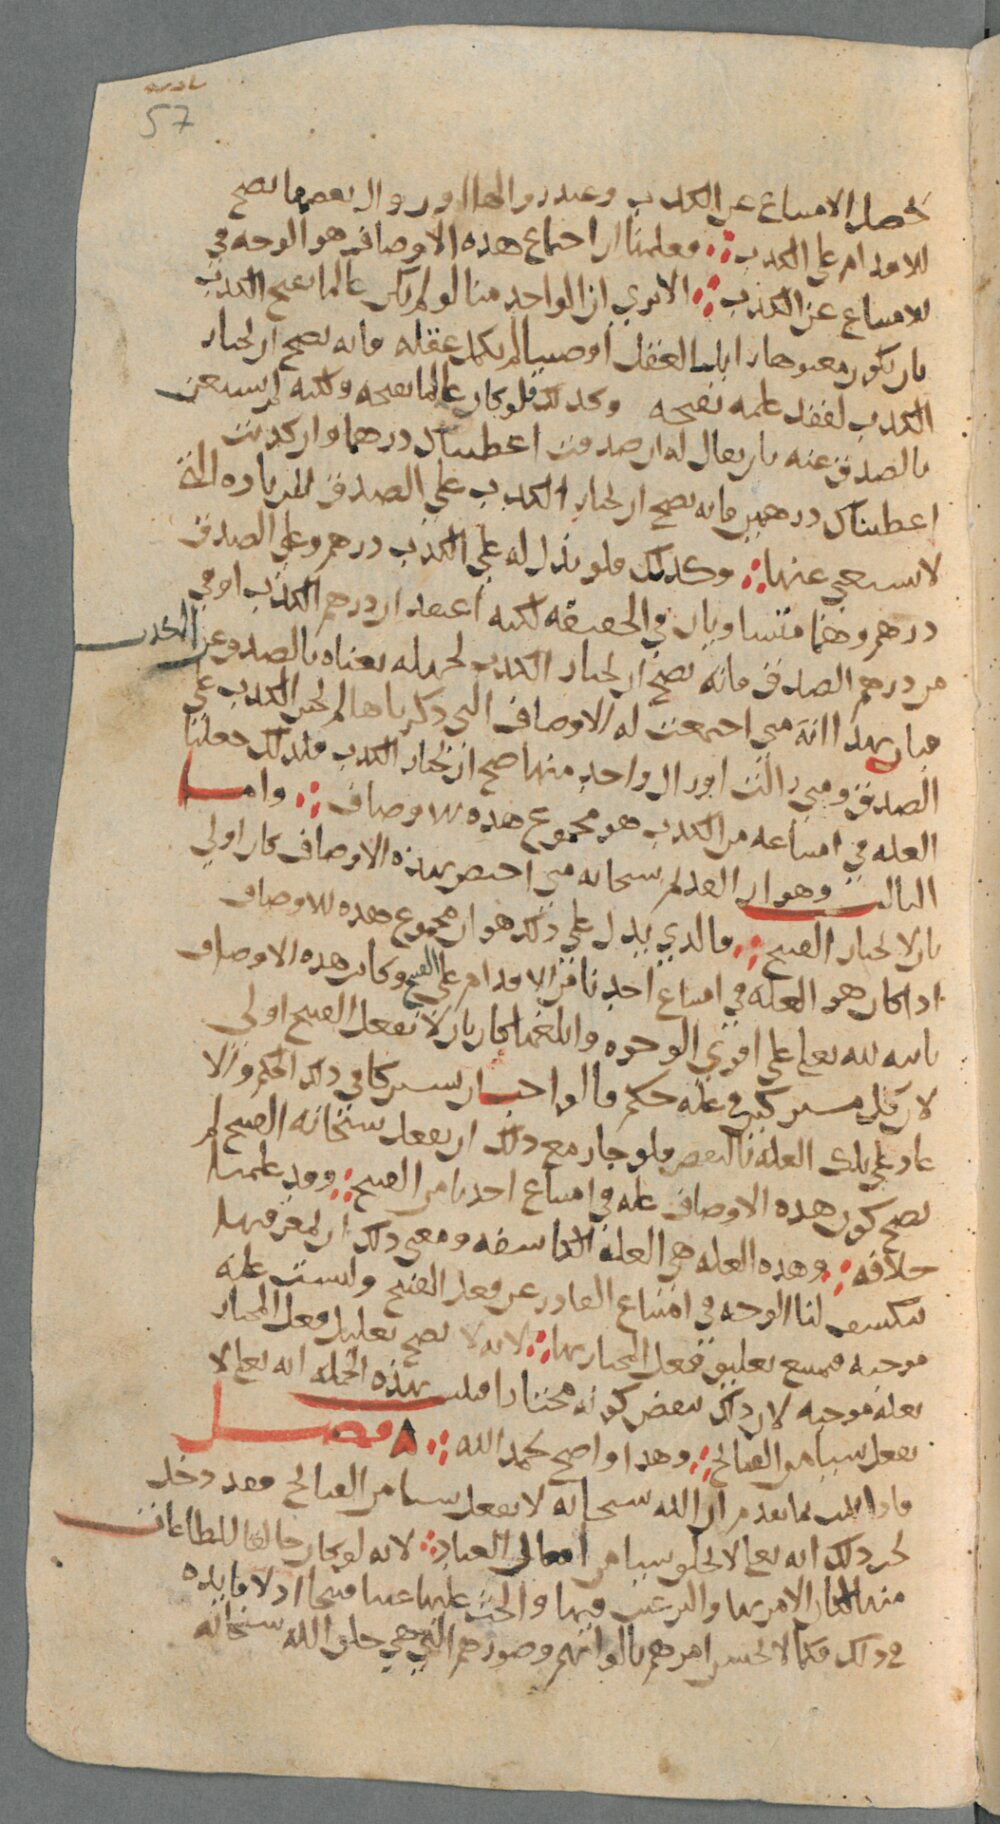 57
حصل الامتناع عن الكذب وعند زوالها او زوال بعضها يصح
الاقدام على الكذب فعلمنا ان اجتماع هذه الاوصاف هو الوجه في
الامتناع عن الكذب الا ترى ان الواحد منا لو لم يكن عالما بقبح الكذب
بان يكون معتوها زايل العقل او صبيا لم يكمل عقله فانه يصح ان يختار
الكذب لفقد علمه بقبحه وكذلك فلو كان عالما بقبحه ولكنه لم يستغن
بالصدق عنه بان يقال له ان صدقت اعطيناك درهما وان كذبت
اعطيناك درهمين فانه يصح ان يختار الكذب على الصدق للزيادة التي
لا يستغني عنها وكذلك فلو بذل له على الكذب درهم وعلى الصدق
درهم وهما متساويان في الحقيقة لكنه اعتقد ان درهم الكذب اوفى
من درهم الصدق فانه يصح ان يختار الكذب لجهله بغناه بالصدق عن الكذب
فبان بهذا انه متى اجتمعت له الاوصاف التي ذكرناها لم يختر الكذب على
الصدق ومتى زالت او زال واحد منها صح ان يختار الكذب فلذلك جعلنا
العلة في امتناعه من الكذب هو مجموع هذه الاوصاف واما
الثالث وهو ان القديم سبحانه متى اختص بهذه الاوصاف كان اولى
بان لا يختار القبيح فالذي يدل على ذلك هو ان مجموع هذه الاوصاف
اذا كان هو العلة في امتناع احدنا من الاقدام على القبيح وكانت هذه الاوصاف
ثابتة لله تعالى على اقوى الوجوه وابلغها كان بان لا يفعل القبيح اولى
لان كل مشتركين في علة حكم فالواجب ان يشتركا في ذلك الحكم والا
عاد على تلك العلة بالنقض فلو جاز مع ذلك ان يفعل سبحانه القبيح لم
يصح كون هذه الاوصاف علة في امتناع احدنا من القبيح وقد علمنا
خلافه وهذه العلة هي العلة الكاشفة ومعنى ذلك ان بمعرفتها
ينكشف لنا الوجه في امتناع القادر عن فعل القبيح وليست علة
موجبة فيمتنع تعليق فعل المختار بها لانه لا يصح تعليل فعل المختار
بعلة موجبة لان ذلك ينقض كونه مختارا فثبت بهذه الجملة انه تعالى لا
يفعل شيئا من القبائح وهذا واضح بحمد الله فصل
فاذا ثبت بما تقدم ان الله سبحانه لا يفعل شيئا من القبائح فقد دخل
تحت ذلك انه تعالى لا يخلق شيئا من افعال العباد لانه لو كان خالقا للطاعات
منها لكان الامر بها والترغيب فيها والحث عليها عبثا قبيحا اذ لا فايدة
في ذلك فكما لا يحسن امرهم بالوانهم وصورهم التي هي خلق الله سبحانه